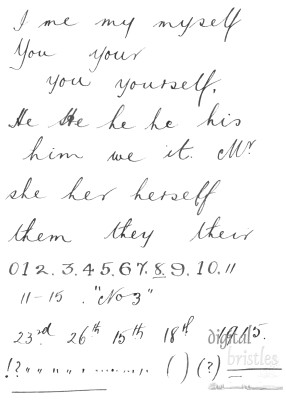 I me my myself
You your
you yourself.
He He he he his
him we it. Mr.
she her herself
them they their
012.3.4.5.6.7.8.9.10.11
11-15. "No 3"
23rd 26th 15th 18th 1915.
digital
bristles
!? " " " " " ........, ( ) (?)